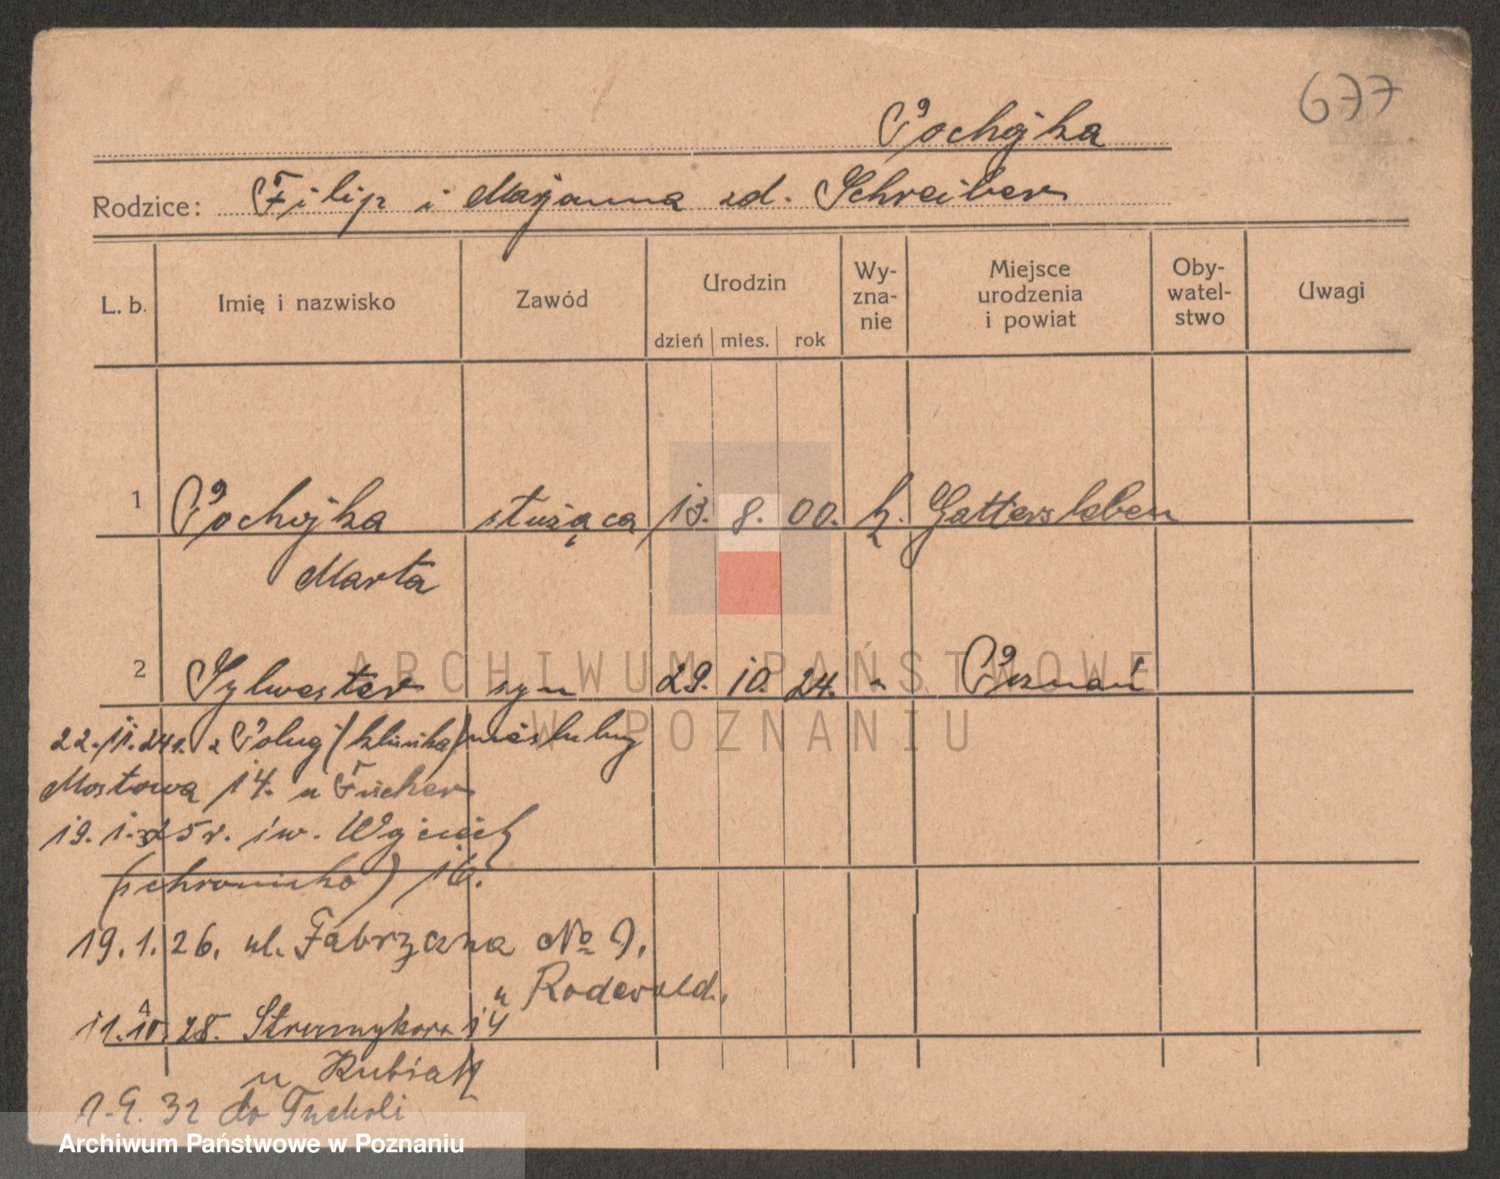 677
Pochojka
Rodzice: Filip i Marjanna zd. Schreiber
L. b. Imię i nazwisko Zawód Urodzin dzień mies. rok Wy-zna-nie Miejsce urodzenia i powiat Oby-watel-stwo Uwagi
1 Pochojka służąca 13. 8. 00. k. Gattersleben
Marta
2 Sylwester syn 29. 10. 24. " Poznań
ARCHIWUM PAŃSTWOWE
W POZNANIU
22. 11. 24 z Polug (klinika) nieślubny
Mostowa 14. u Fücher
19. 1. 25 r. św. Wojciech
(schronisko) 16.
19. 1. 26. ul. Fabryczna No 9.
u Rodewald.
11. 28. Strumykowa 14
u Kubiak
1. 9. 32 do Tucholi
Archiwum Państwowe w Poznaniu